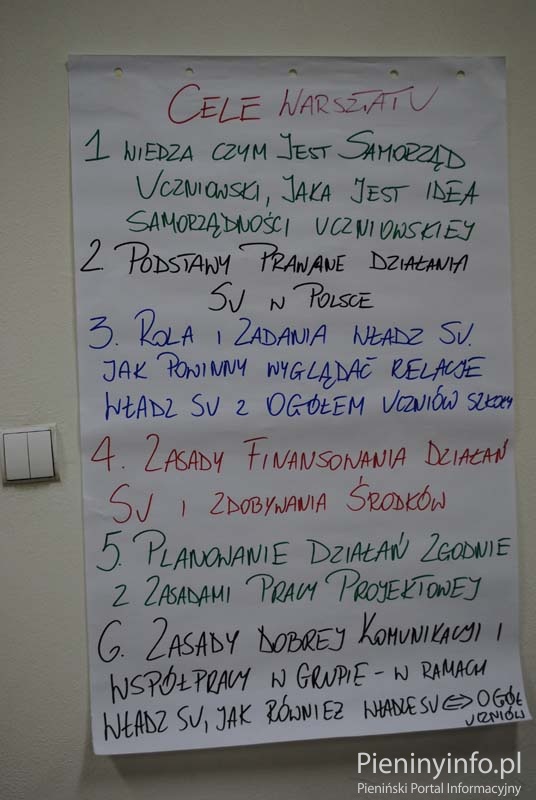 CELE WARSZTATU
1 WIEDZA CZYM JEST SAMORZĄD
UCZNIOWSKI, JAKA JEST IDEA
SAMORZĄDNOŚCI UCZNIOWSKIEJ
2. PODSTAWY PRAWNE DZIAŁANIA
SU W POLSCE
3. ROLA I ZADANIA WŁADZ SU.
JAK POWINNY WYGLĄDAĆ RELACJE
WŁADZ SU Z OGÓŁEM UCZNIÓW SZKOŁY
4. ZASADY FINANSOWANIA DZIAŁAŃ
SU I ZDOBYWANIA ŚRODKÓW
5. PLANOWANIE DZIAŁAŃ ZGODNIE
Z ZASADAMI PRACY PROJEKTOWEJ
6. ZASADY DOBREJ KOMUNIKACJI I
WSPÓŁPRACY W GRUPIE - W RAMACH
WŁADZ SU, JAK RÓWNIEŻ WŁADZE SU ⇔ OGÓŁ
UCZNIÓW
Pieninyinfo.pl
Pieniński Portal Informacyjny